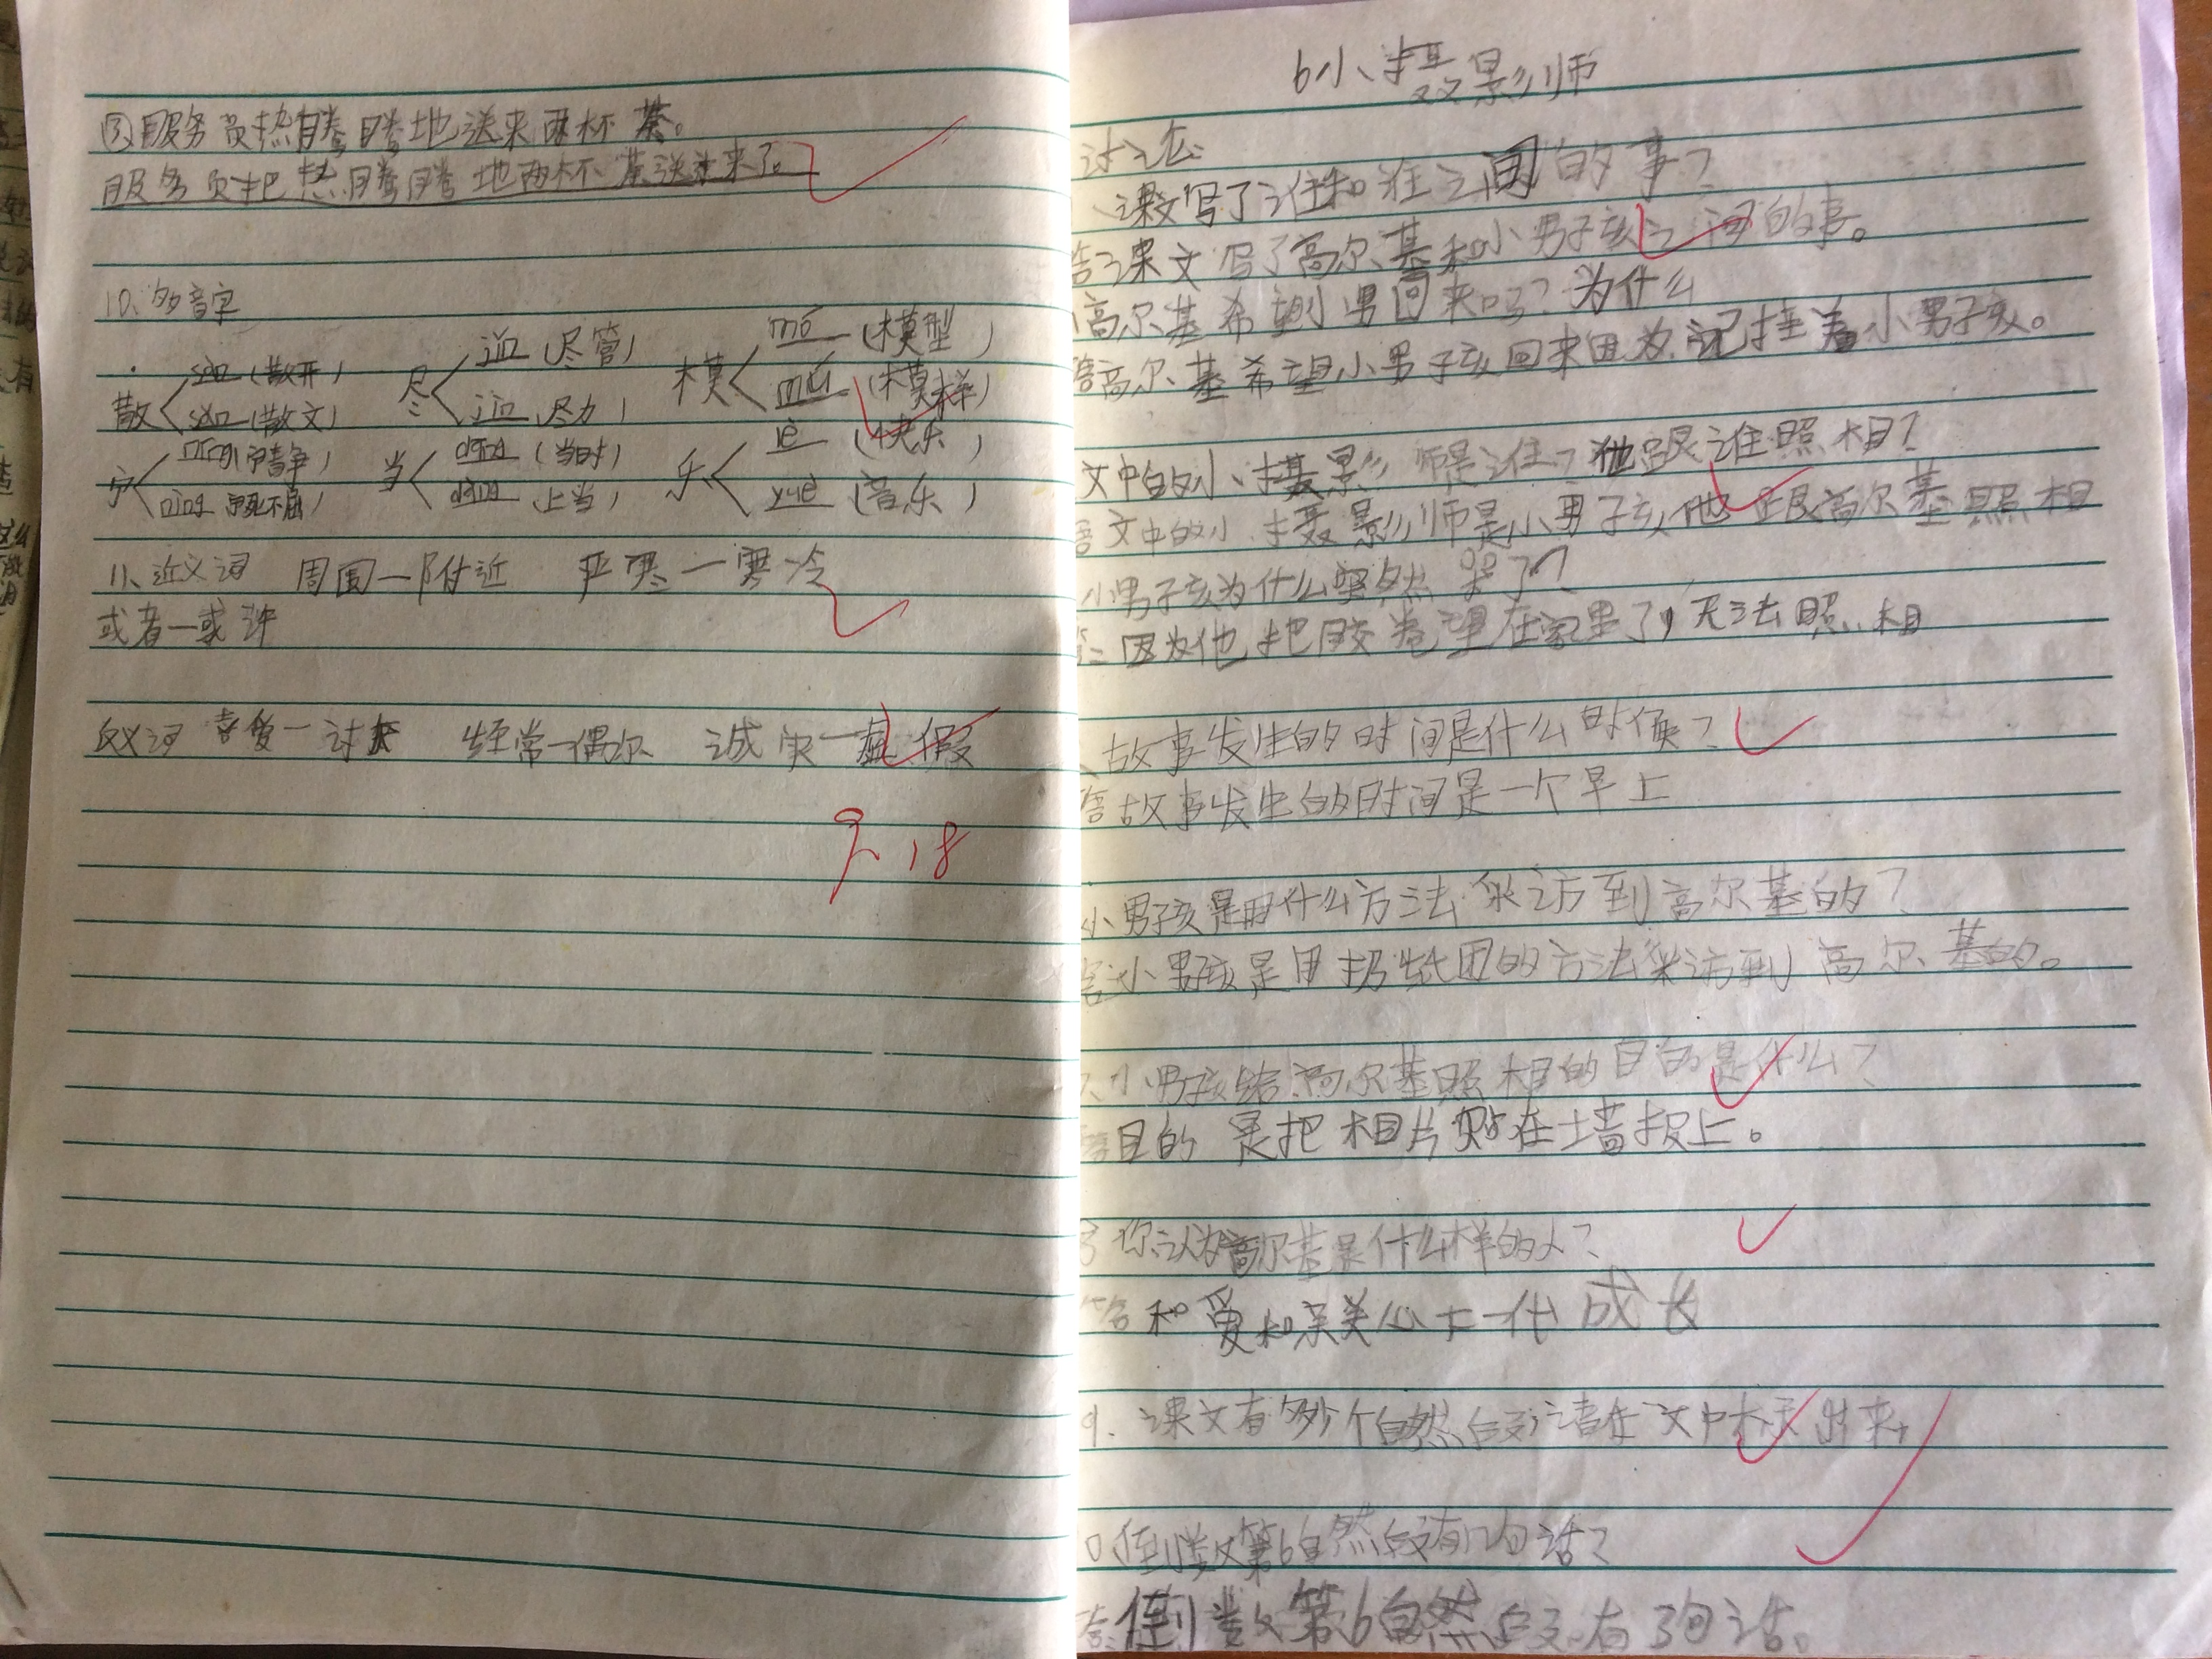 ③服务员热腾腾地送来两杯茶。
服务员把热腾腾地两杯茶送来了。
10、多音字
散 sàn (散开) 尽 jǐn (尽管) 模 mó (模型)
sǎn (散文) jìn (尽力) mú (模样)
宁 (宁静) 当 dāng (当时) 乐 lè (快乐)
nìng 宁死不屈) dàng 上当) yuè (音乐)
11、近义词 周围—附近 严寒—寒冷
或者—或许
反义词 喜爱—讨厌 经常—偶尔 诚实—虚假
9.18
6小摄影师
讨论:
、课文写了谁和谁之间的事?
答:课文写了高尔基和小男孩之间的事。
高尔基希望小男回来吗?为什么
答高尔基希望小男孩回来因为记挂着小男孩。
文中的小摄影师是谁?他跟谁照相?
答文中的小摄影师是小男孩他 跟高尔基照相
小男孩为什么突然哭了?
答:因为他把胶卷忘在家里了,无法照相
、故事发生的时间是什么时候?
答故事发生的时间是一个早上
小男孩是用什么方法采访到高尔基的?
答:小男孩是用扔纸团的方法采访到高尔基的。
7、小男孩给高尔基照相的目的是什么?
答目的是把相片贴在墙报上。
你认为高尔基是什么样的人?
答和爱和亲关心下一代成长
9、课文有多少个自然段请在文中标出来,
0倒数第6自然段有几句话?
答:倒数第6自然段有3句话。